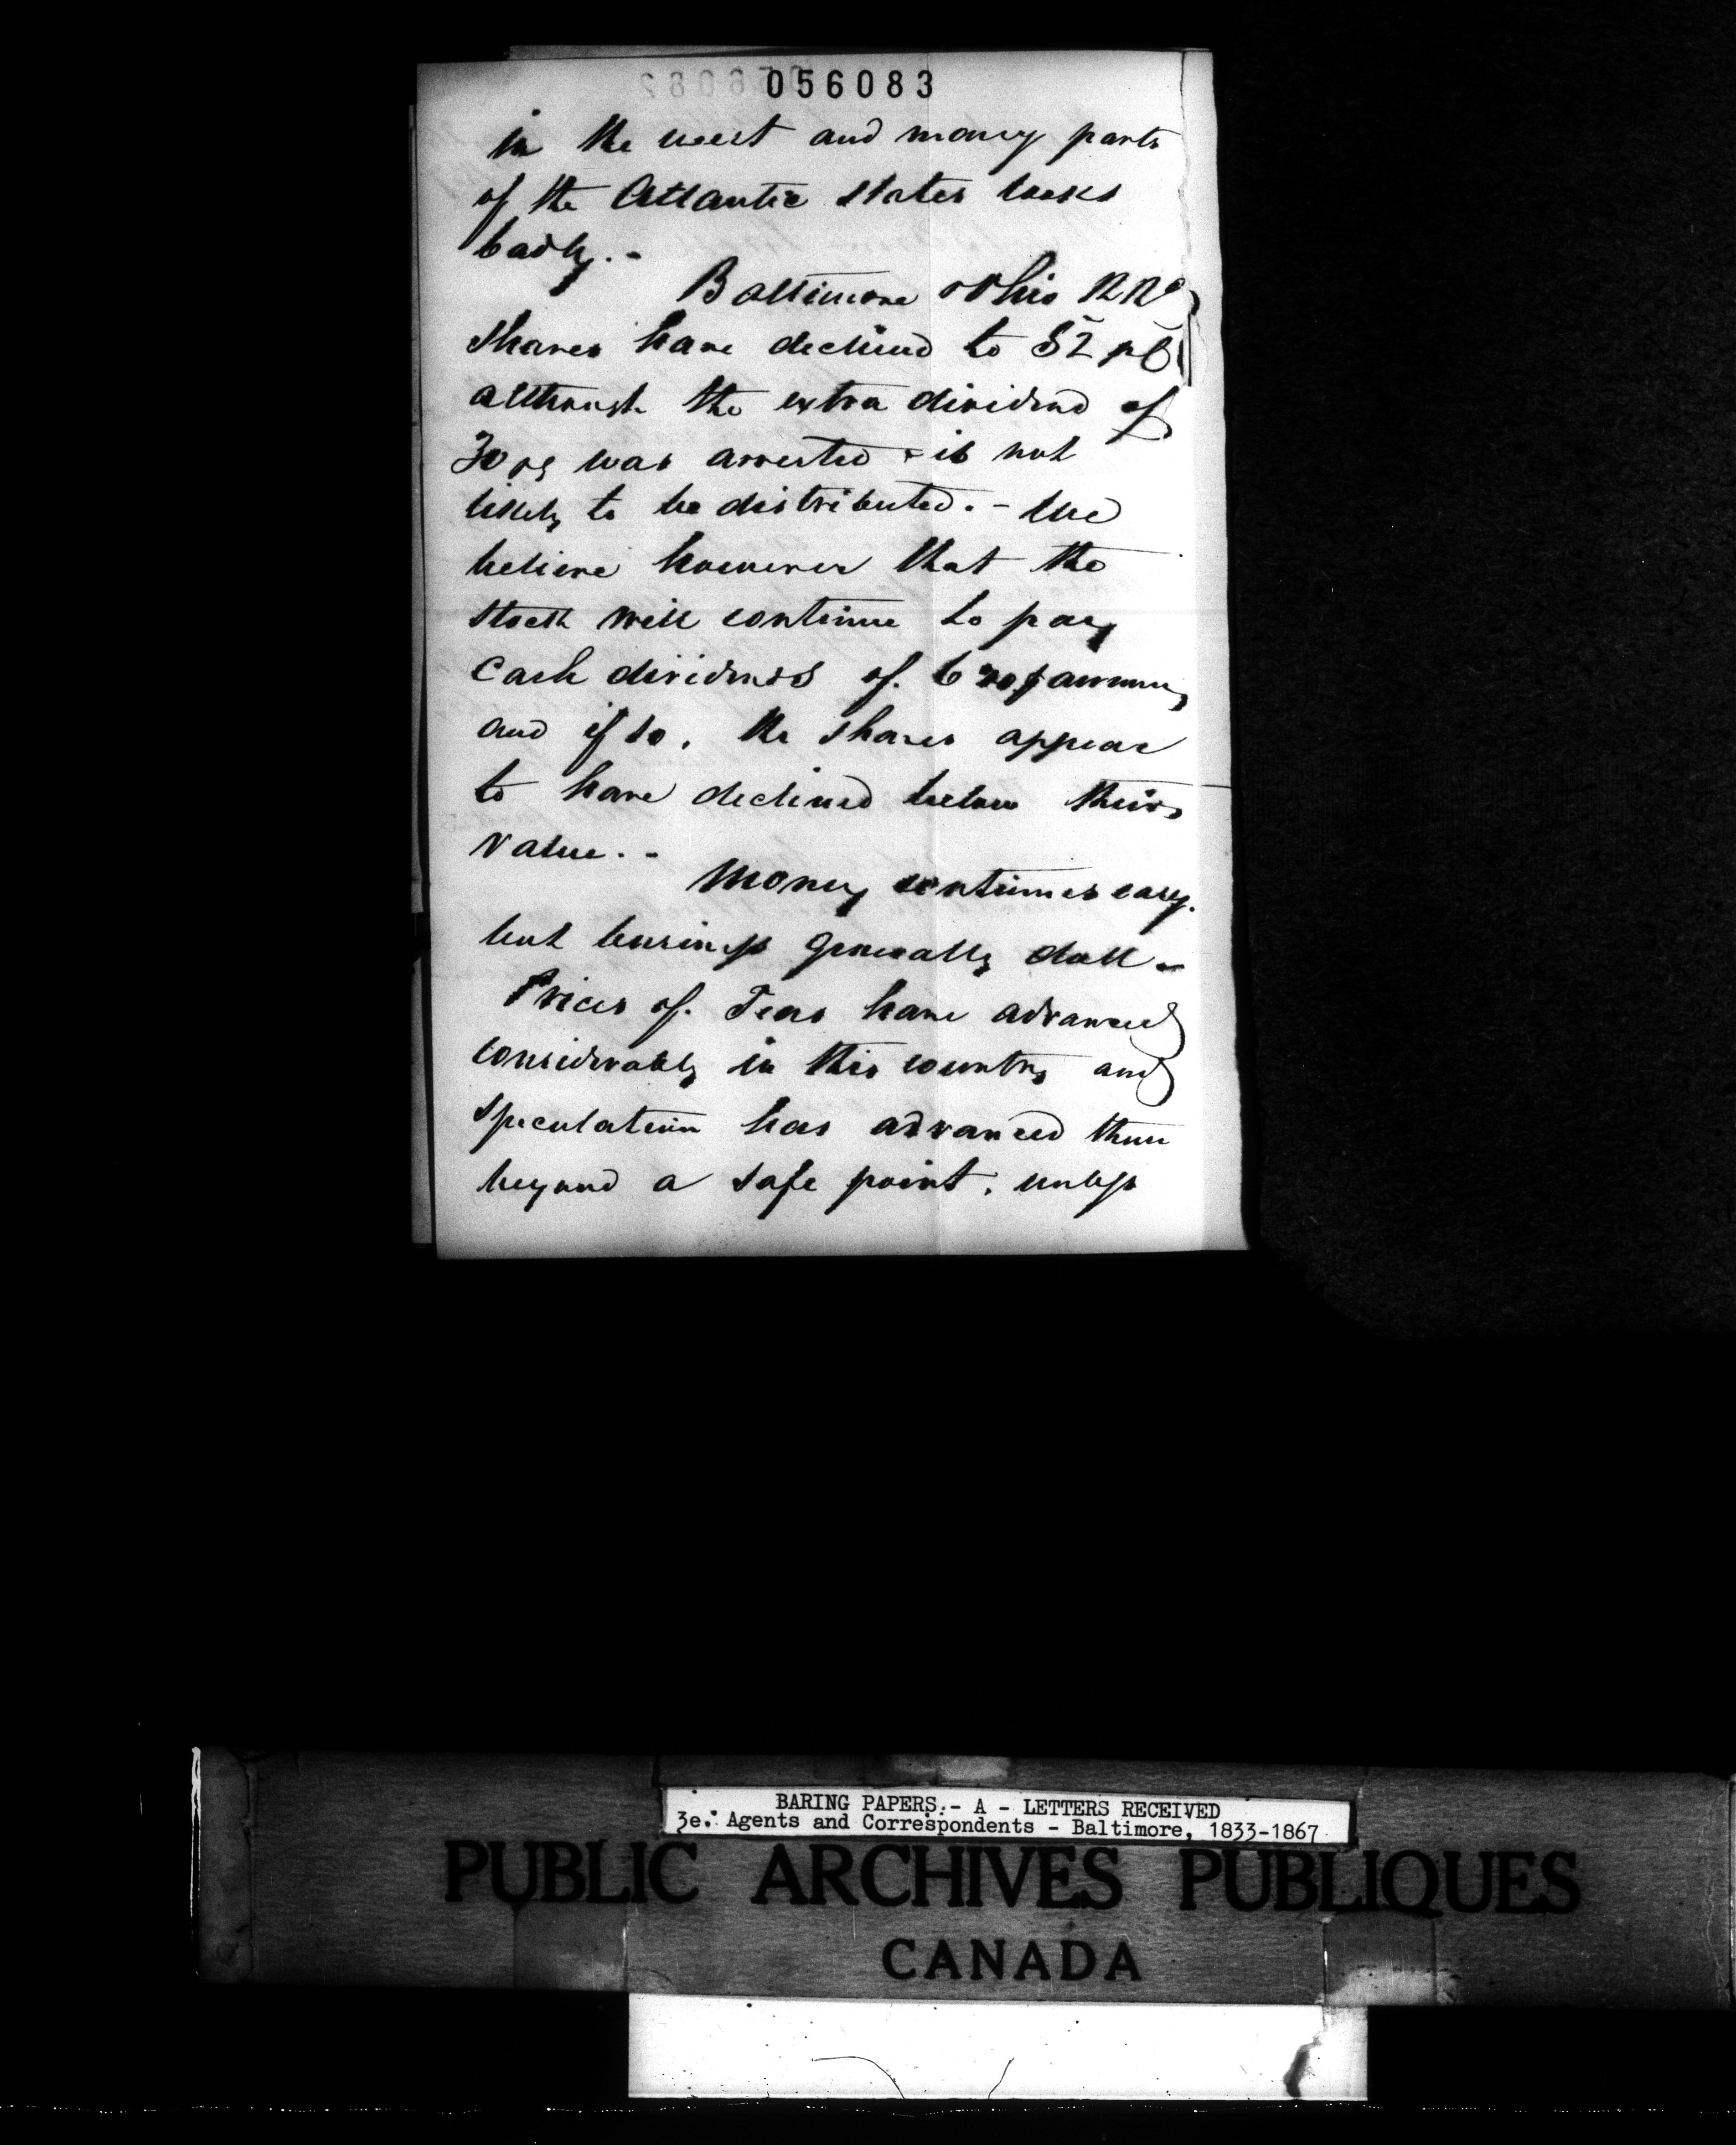 056083
in the west and many parts
of the Atlantic States looks
badly. -
Baltimore & Ohio RRd
shares have declined to 52 p%
although the extra dividend of
30 p% was arrested & is not
likely to be distributed. - We
believe however that the
stock will continue to pay
Cash dividends of 6 annum,
and if so, the shares appear
to have declined below their
value. -
Money continues easy.
but business generally dull -
Prices of Teas have advanced
considerably in this country and
speculation has advanced them
beyond a safe point, unless
BARING PAPERS.- A - LETTERS RECEIVED
3e. Agents and Correspondents - Baltimore, 1833-1867
PUBLIC ARCHIVES PUBLIQUES
CANADA